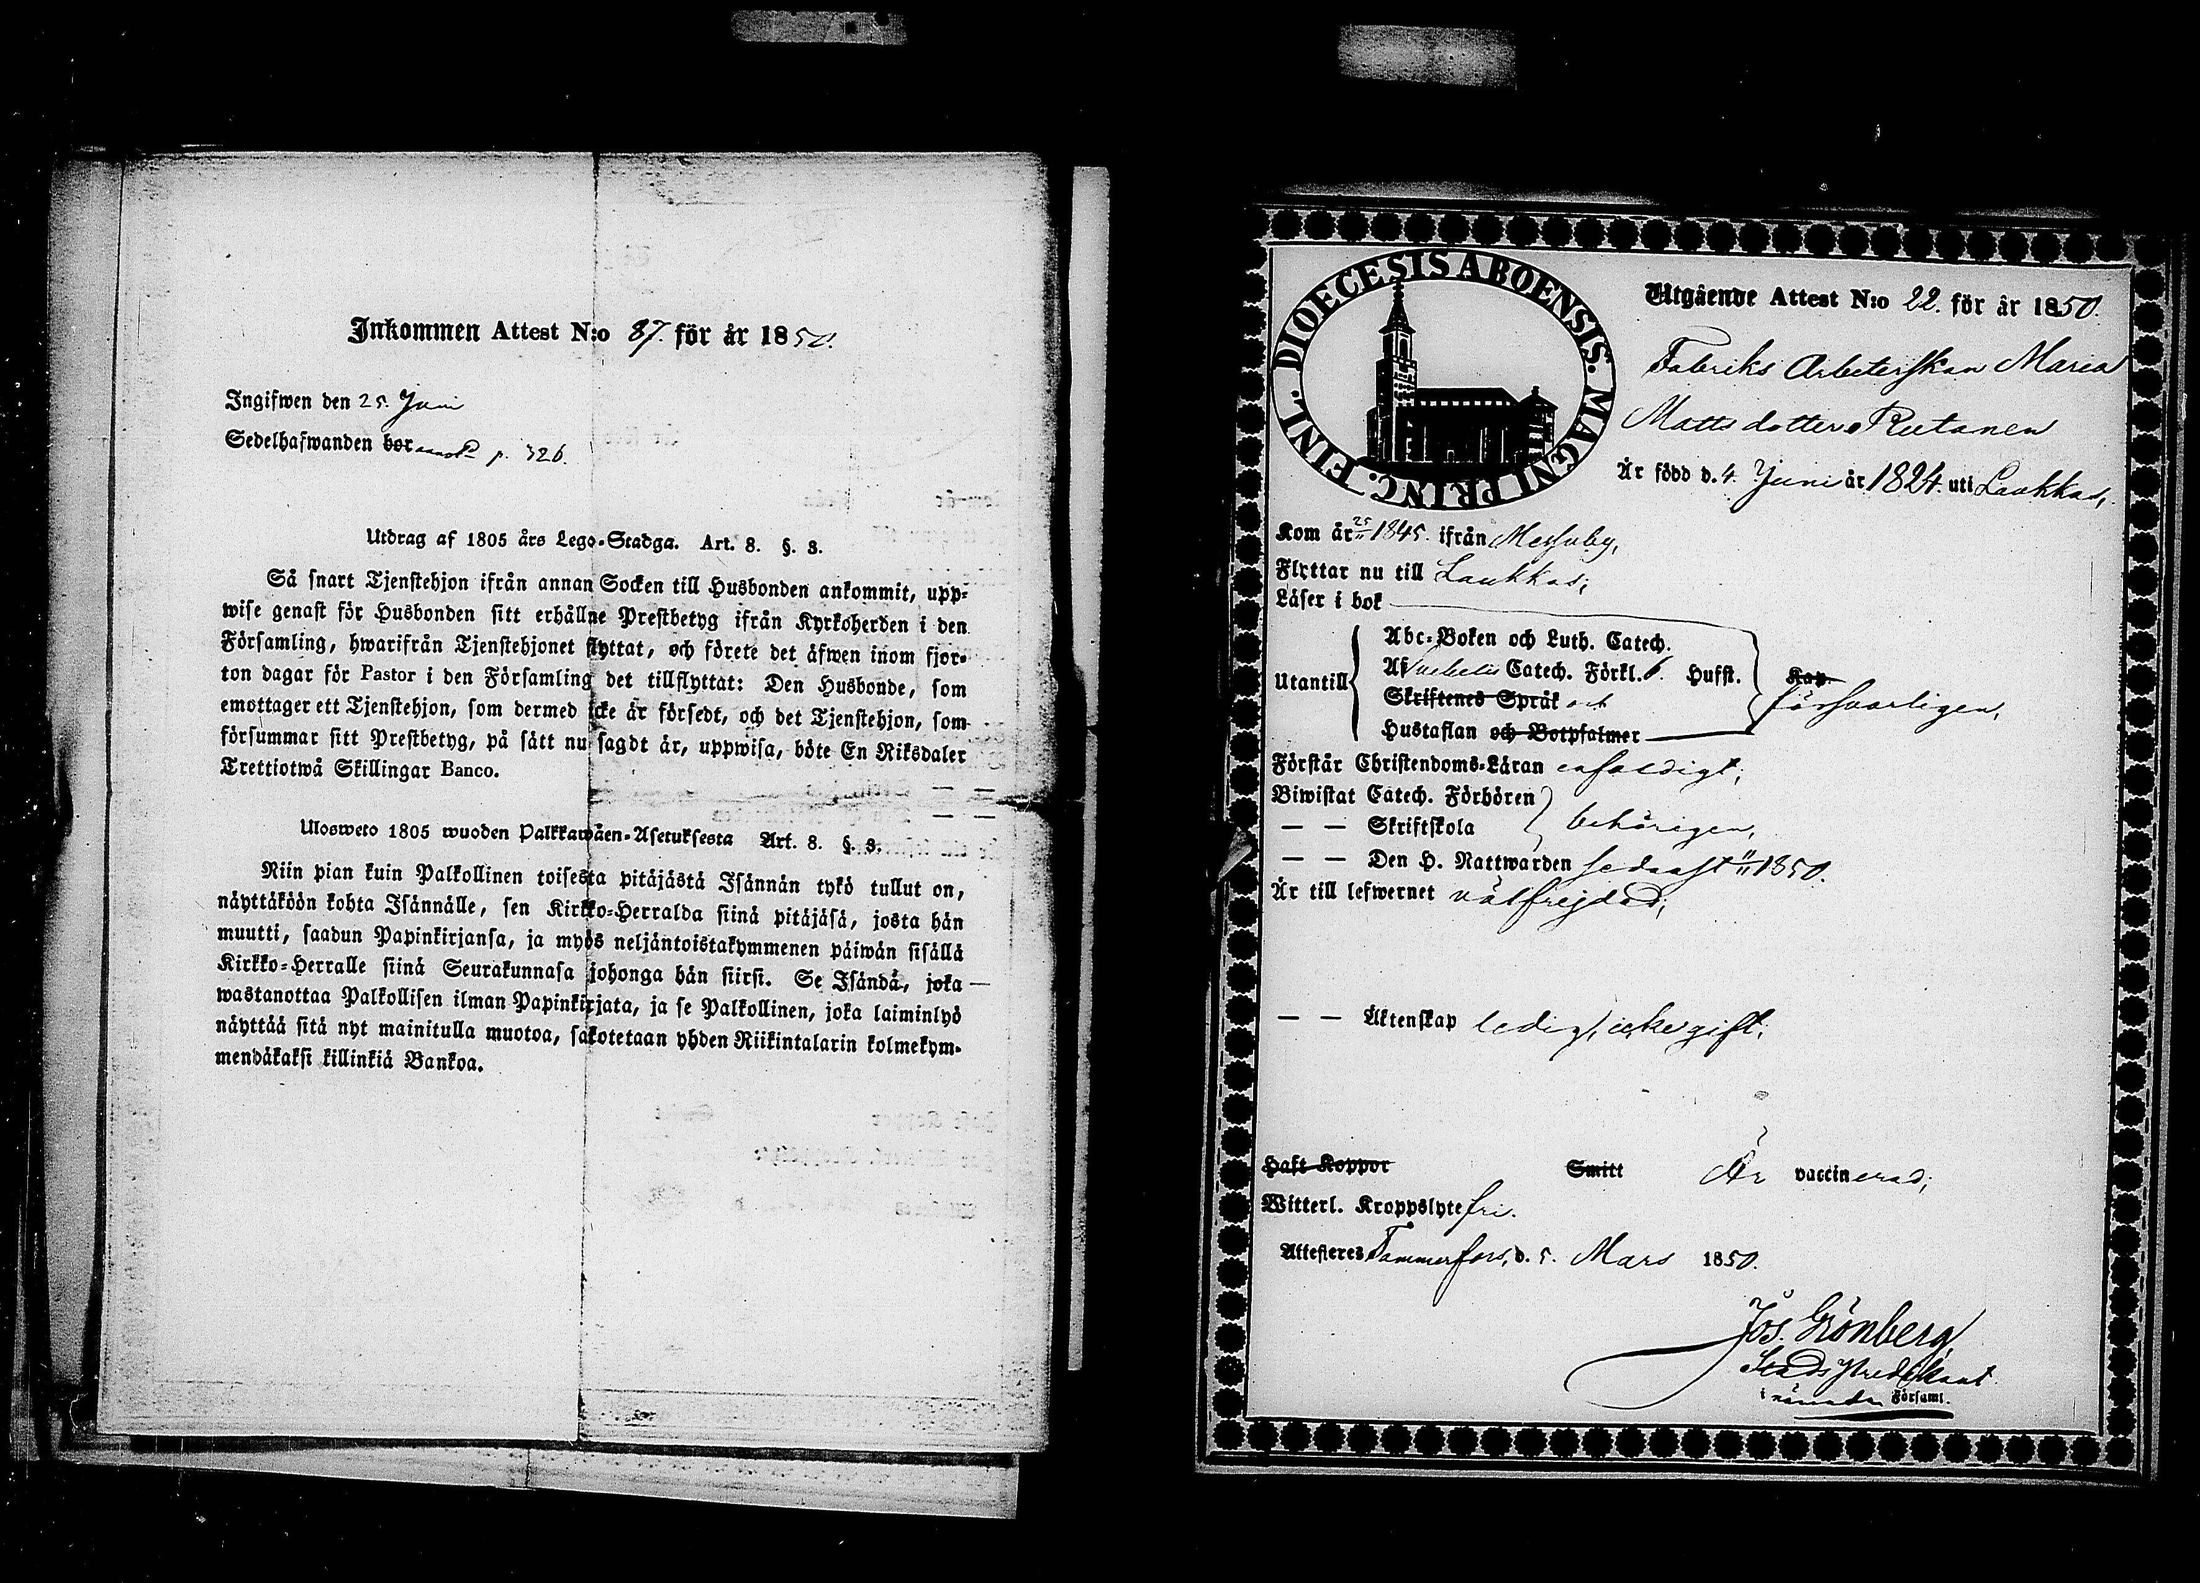 Inkommen Attest N:o 87. för år 1850.
Ingifwen den 25. Juni
Sedelhafwanden bor p. 326.
Utdrag af 1805 års Lego-Stadga. Art. 8. §. 3.
Så snart Tjenstehjon ifrån annan Socken till Husbonden ankommit, upp-
wise genast för Husbonden sitt erhållne Prestbetyg ifrån Kyrkoherden i den
Församling, hwarifrån Tjenstehjonet flyttat, och förete det äfwen inom fjor-
ton dagar för Pastor i den Församling det tillflyttat: Den Husbonde, som
emottager ett Tjenstehjon, som dermed icke är försedt, och det Tjenstehjon, som
försummar sitt Prestbetyg, på sätt nu sagdt är, uppwisa, böte En Riksdaler
Trettiotwå Skillingar Banco.
Ulosweto 1805 wuoden Palkkawäen-Asetuksesta Art. 8. §. 3.
Niin pian kuin Palkollinen toisesta pitäjästä Isännän tykö tullut on,
näyttäköön kohta Isännälle, sen Kirkko-Herralda siinä pitäjäsä, josta hän
muutti, saadun Papinkirjansa, ja myös neljäntoistakymmenen päiwän sisällä
Kirkko-Herralle siinä Seurakunnasa johonga hän siirsi. Se Isändä, joka
wastanottaa Palkollisen ilman Papinkirjata, ja se Palkollinen, joka laiminlyö
näyttää sitä nyt mainitulla muotoa, sakotetaan yhden Riikintalarin kolmekym-
mendäkaksi killinkiä Bankoa.
DIOECESIS ABOENSIS. MAGNI PRINC. FINL.
Utgående Attest N:o 22. för år 1850.
Fabriks Arbeterskan Maria
Matts dotter Rutanen
Är född d. 4. Juni år 1824. uti Laukkas,
Kom år 1845. ifrån Messuby,
Flyttar nu till Laukkas;
Läser i bok
Utantill
Abc-Boken och Luth. Catech.
Af Svebelii Catech. Förkl. 6. Hufst.
Skriftenes Språk och
Hustaflan och Botpsalmer
Kap.
försvarligen,
Förstår Christendoms-Läran enfaldigt;
Biwistat Catech. Förhören
— — Skriftskola
behörigen,
— — Den H. Nattwarden sednast 1850.
Är till lefwernet välfrejdad;
— — Äktenskap ledig, icke gift;
Haft Koppor Smitt Är vaccinerad;
Witterl. Kroppslyte fri.
Attesteres Tammerfors, d. 5. Mars 1850.
Jos. Grönberg,
Stads Predikant
i nämnda Församl.